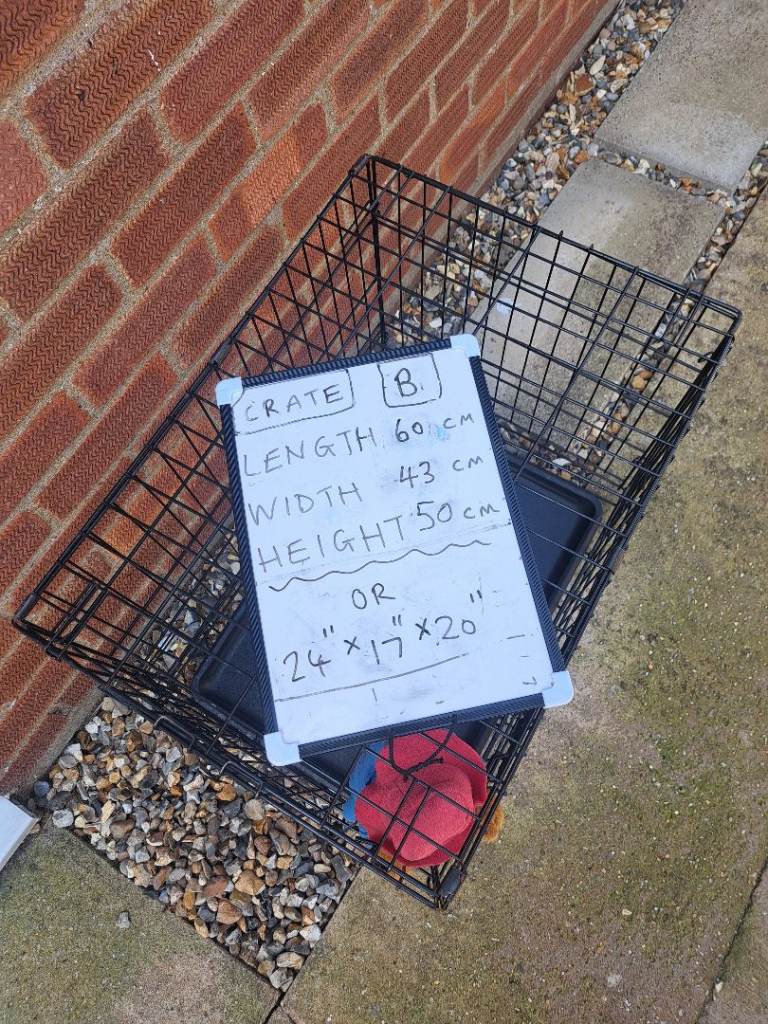 CRATE B
LENGTH 60 cm
WIDTH 43 cm
HEIGHT 50 cm
OR
24" x 17" x 20"